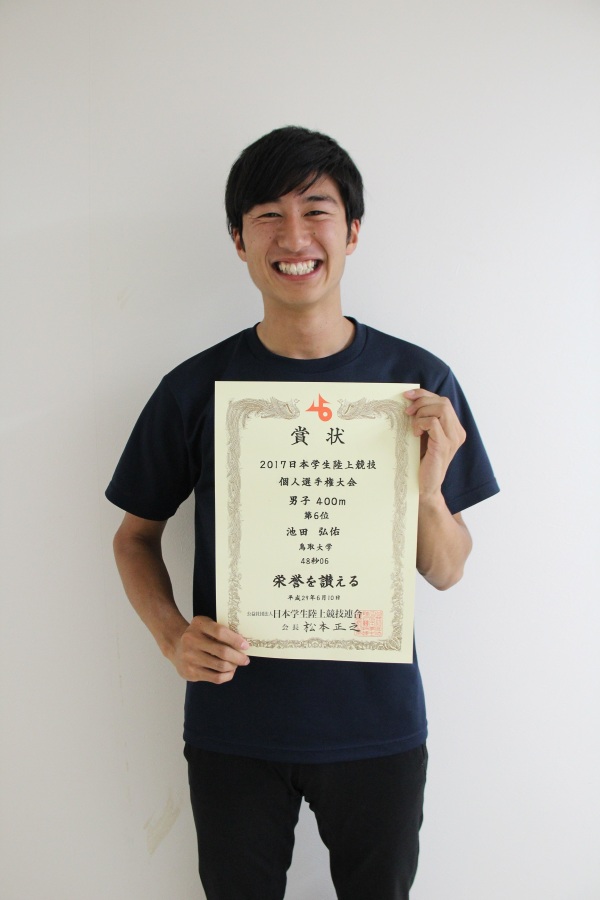 賞状
2017日本学生陸上競技
個人選手権大会
男子 400m
第6位
池田 弘佑
鳥取大学
48秒06
栄誉を讃える
平成29年6月10日
公益社団法人日本学生陸上競技連合
会長 松本正之